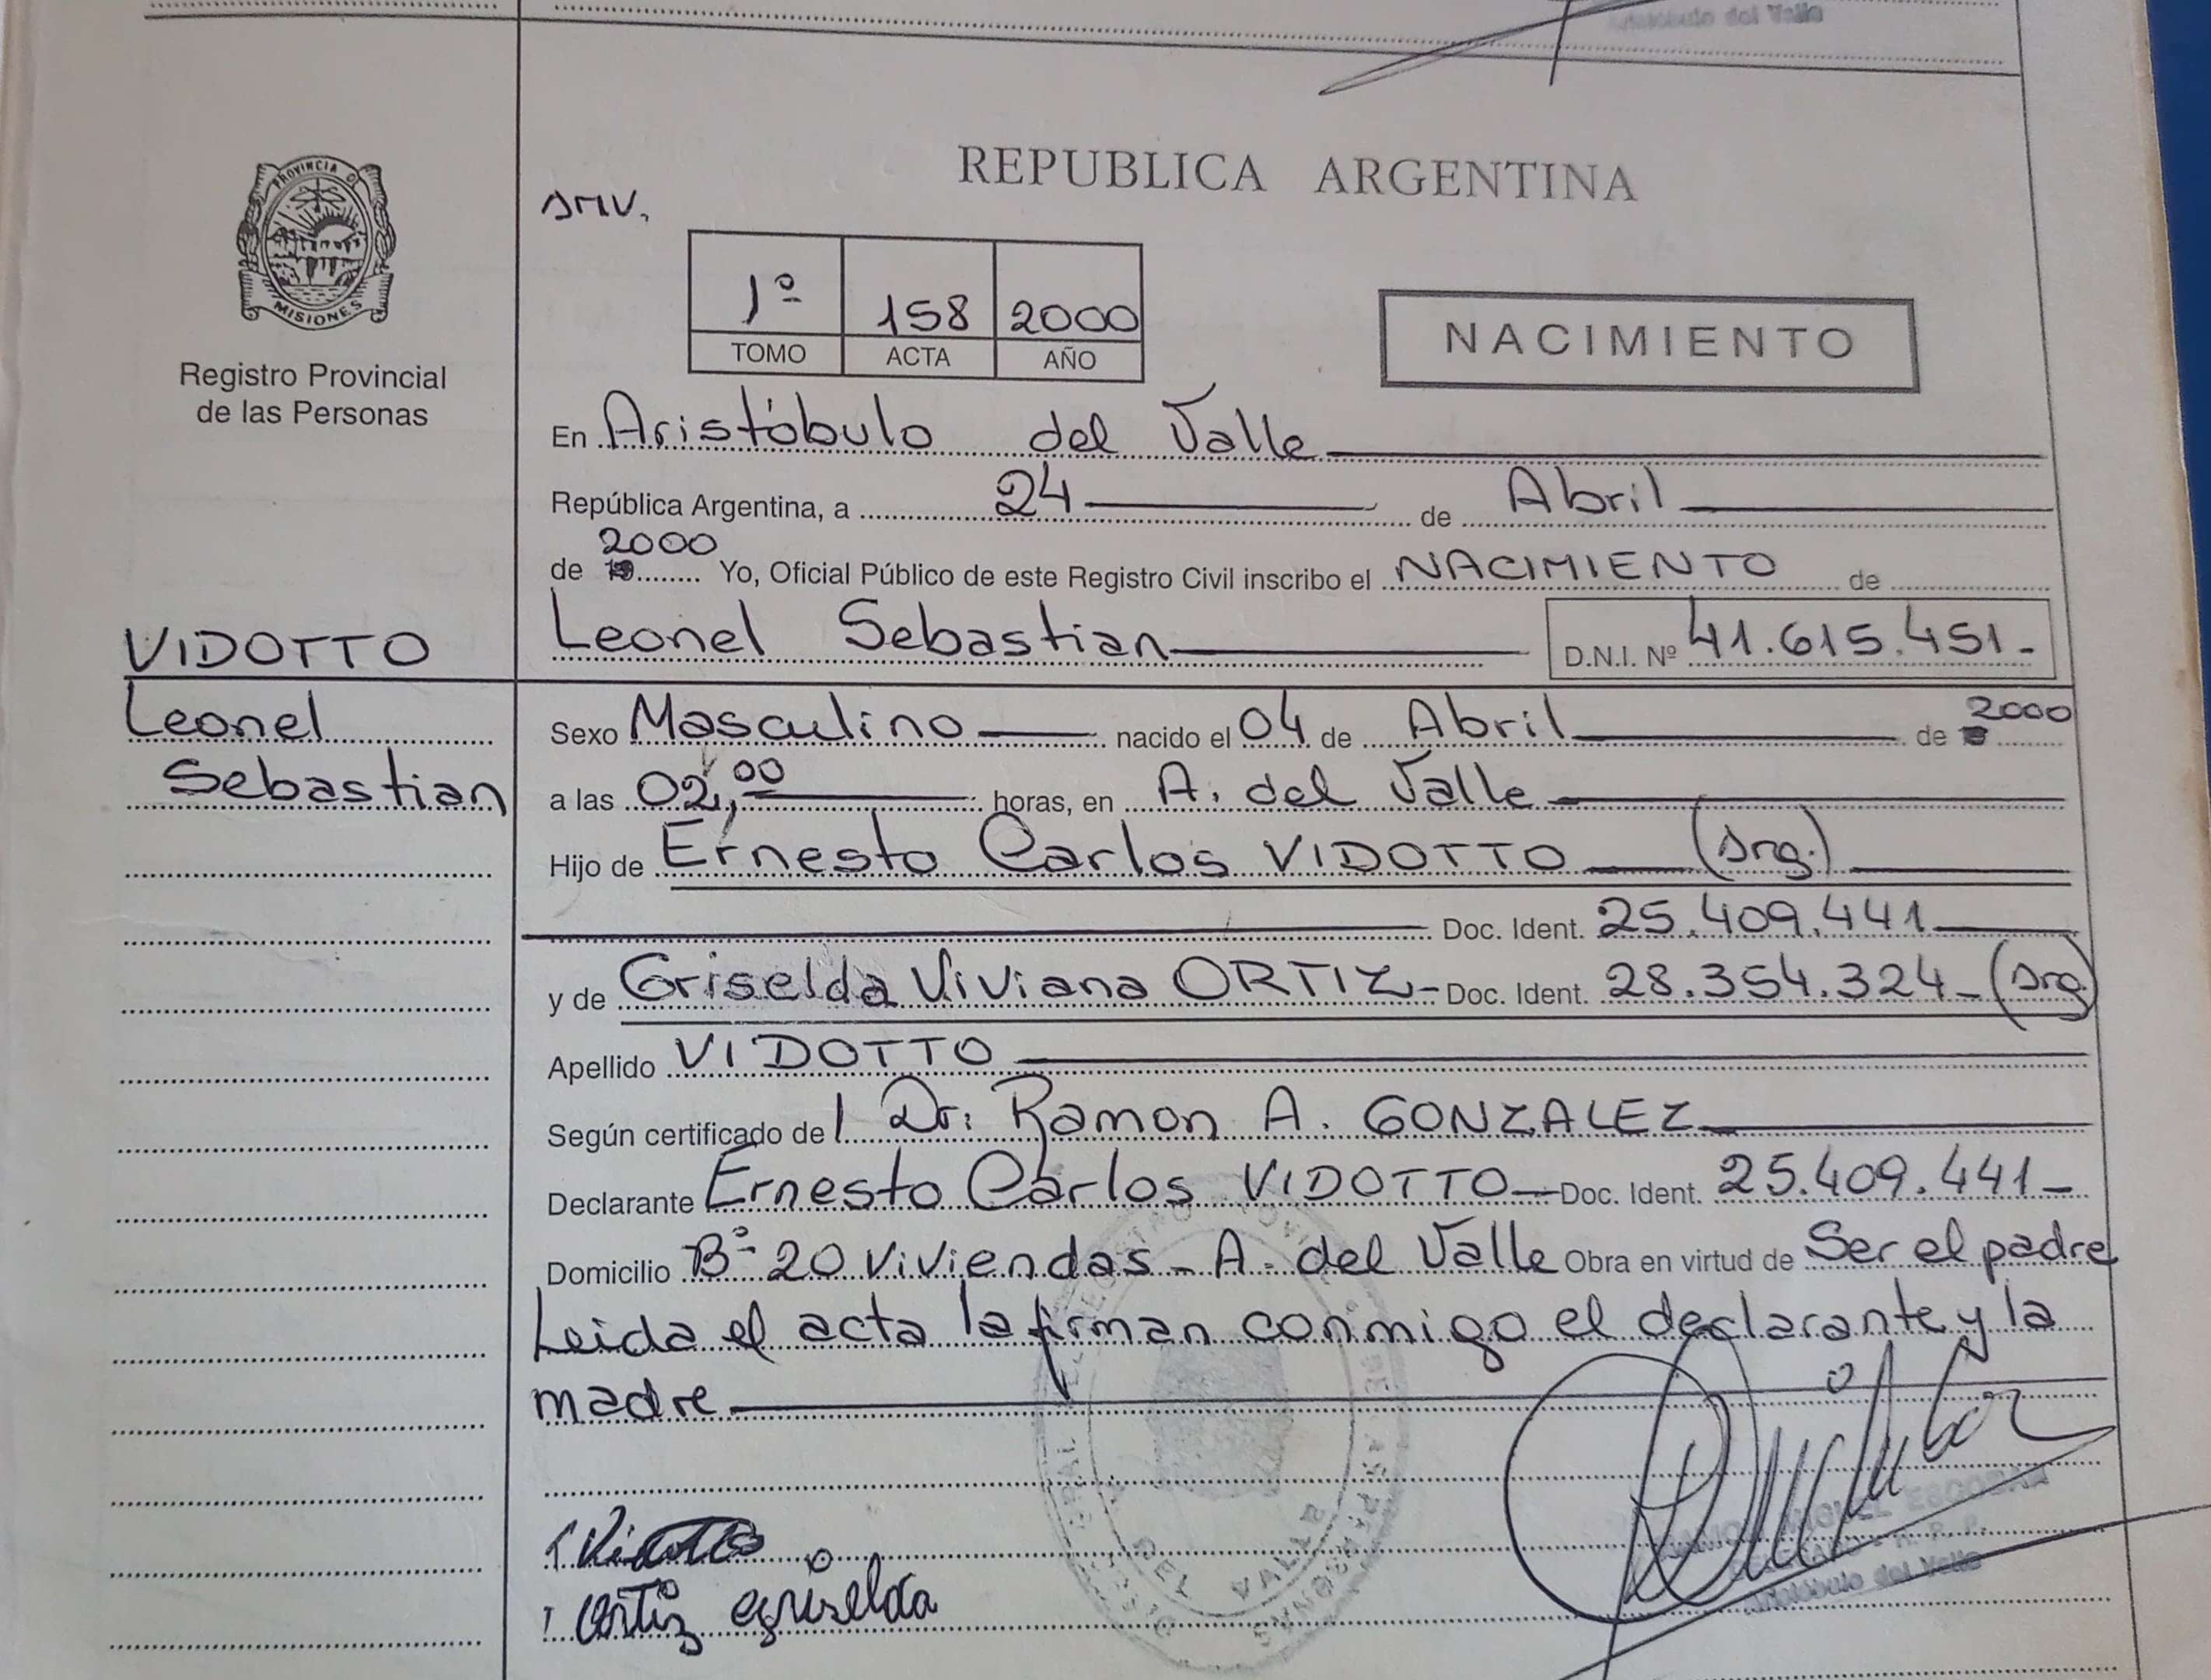 del Valle
PROVINCIA DE
MISIONES
Registro Provincial
de las Personas
VIDOTTO
Leonel
Sebastian
REPUBLICA ARGENTINA
1º 158 2000
TOMO ACTA AÑO
NACIMIENTO
En Aristóbulo del Valle
República Argentina, a 24 de Abril
2000
de 19 Yo, Oficial Público de este Registro Civil inscribo el NACIMIENTO de
Leonel Sebastian D.N.I. Nº 41.615.451-
Sexo Masculino nacido el 04 de Abril de 2000
a las 02,00 horas, en A. del Valle
Hijo de Ernesto Carlos VIDOTTO (Arg.)
Doc. Ident. 25.409.441
y de Griselda Viviana ORTIZ - Doc. Ident. 28.354.324 - (Arg.)
Apellido VIDOTTO
Según certificado del Dr. Ramon A. GONZALEZ
Declarante Ernesto Carlos VIDOTTO - Doc. Ident. 25.409.441 -
Domicilio Bº 20 Viviendas - A. del Valle Obra en virtud de Ser el padre
Leida el acta la firman conmigo el declarante y la
madre
Ortiz Griselda
MIGUEL ESCOBAR
del Valle
DEL VALLE